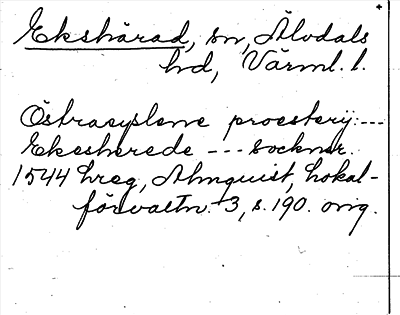 Ekshärad, sn, Älvdals
hd, Värml. l.
Östrasyslene proesterij: ---
Ekesherede --- socknar.
1544 hreg, Almquist, Lokal-
förvaltn. 3, s. 190. orig.